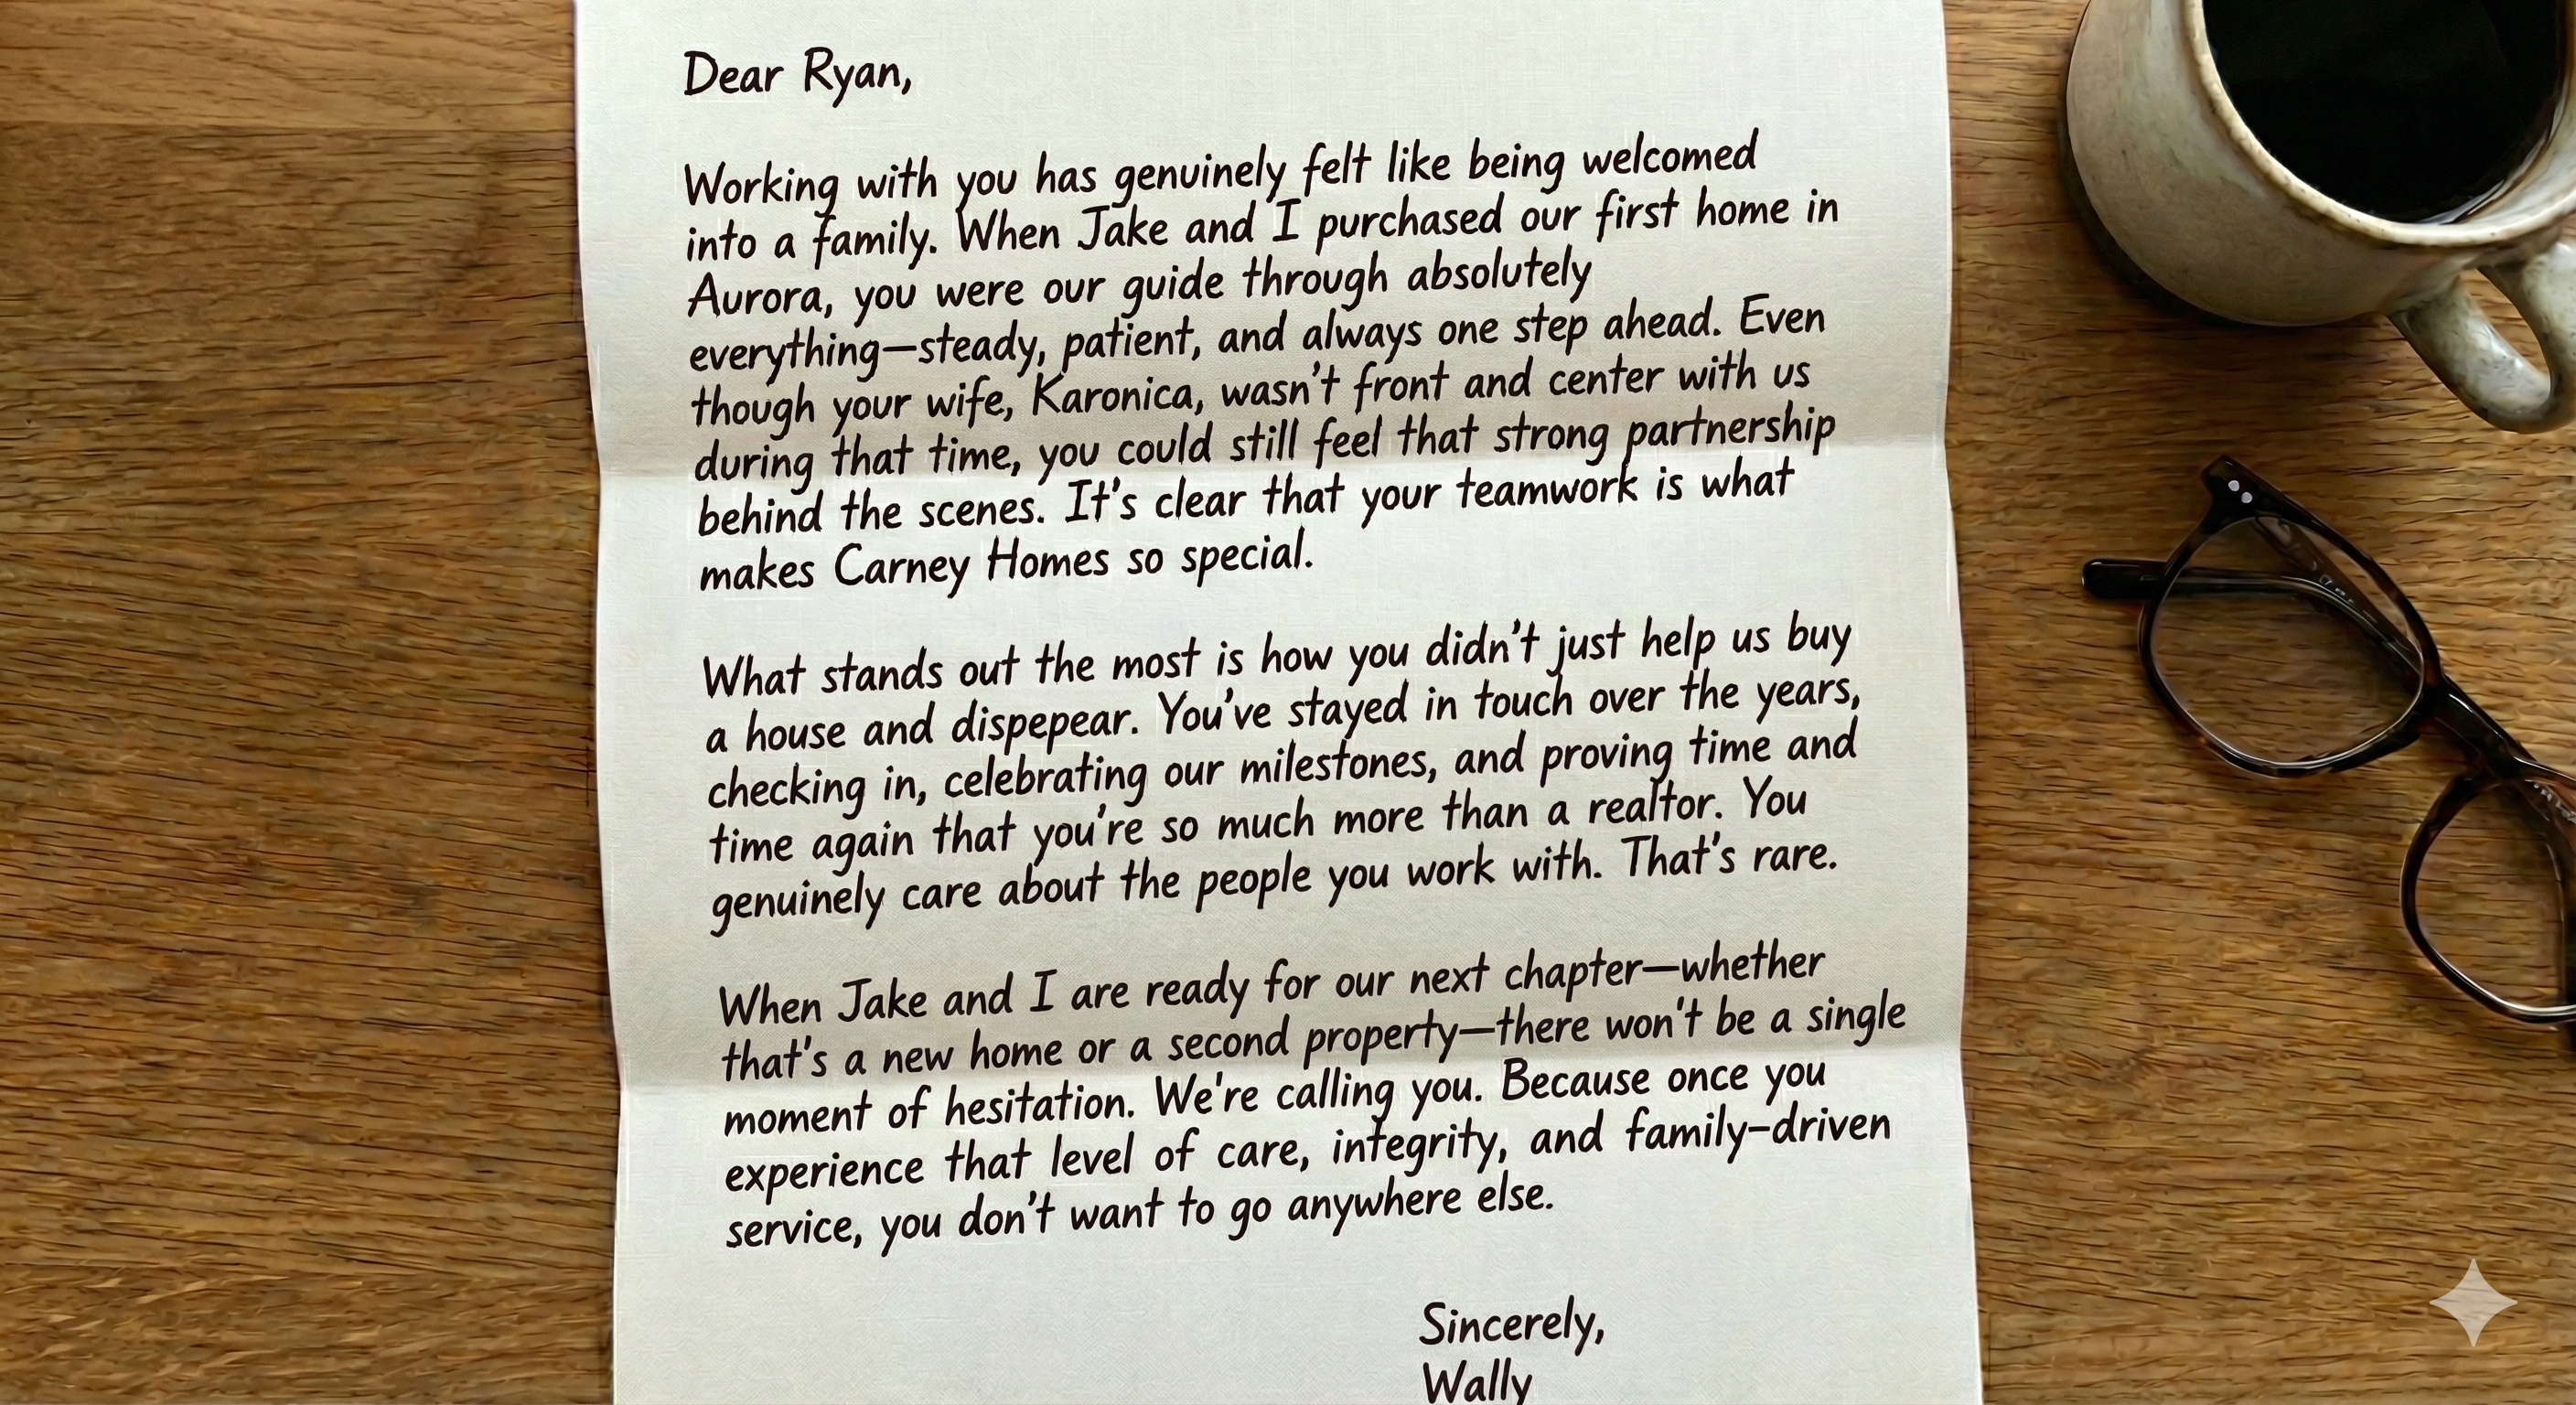 Dear Ryan,
Working with you has genuinely felt like being welcomed
into a family. When Jake and I purchased our first home in
Aurora, you were our guide through absolutely
everything—steady, patient, and always one step ahead. Even
though your wife, Karonica, wasn't front and center with us
during that time, you could still feel that strong partnership
behind the scenes. It's clear that your teamwork is what
makes Carney Homes so special.
What stands out the most is how you didn't just help us buy
a house and dispepear. You've stayed in touch over the years,
checking in, celebrating our milestones, and proving time and
time again that you're so much more than a realtor. You
genuinely care about the people you work with. That's rare.
When Jake and I are ready for our next chapter—whether
that's a new home or a second property—there won't be a single
moment of hesitation. We're calling you. Because once you
experience that level of care, integrity, and family-driven
service, you don't want to go anywhere else.
Sincerely,
Wally